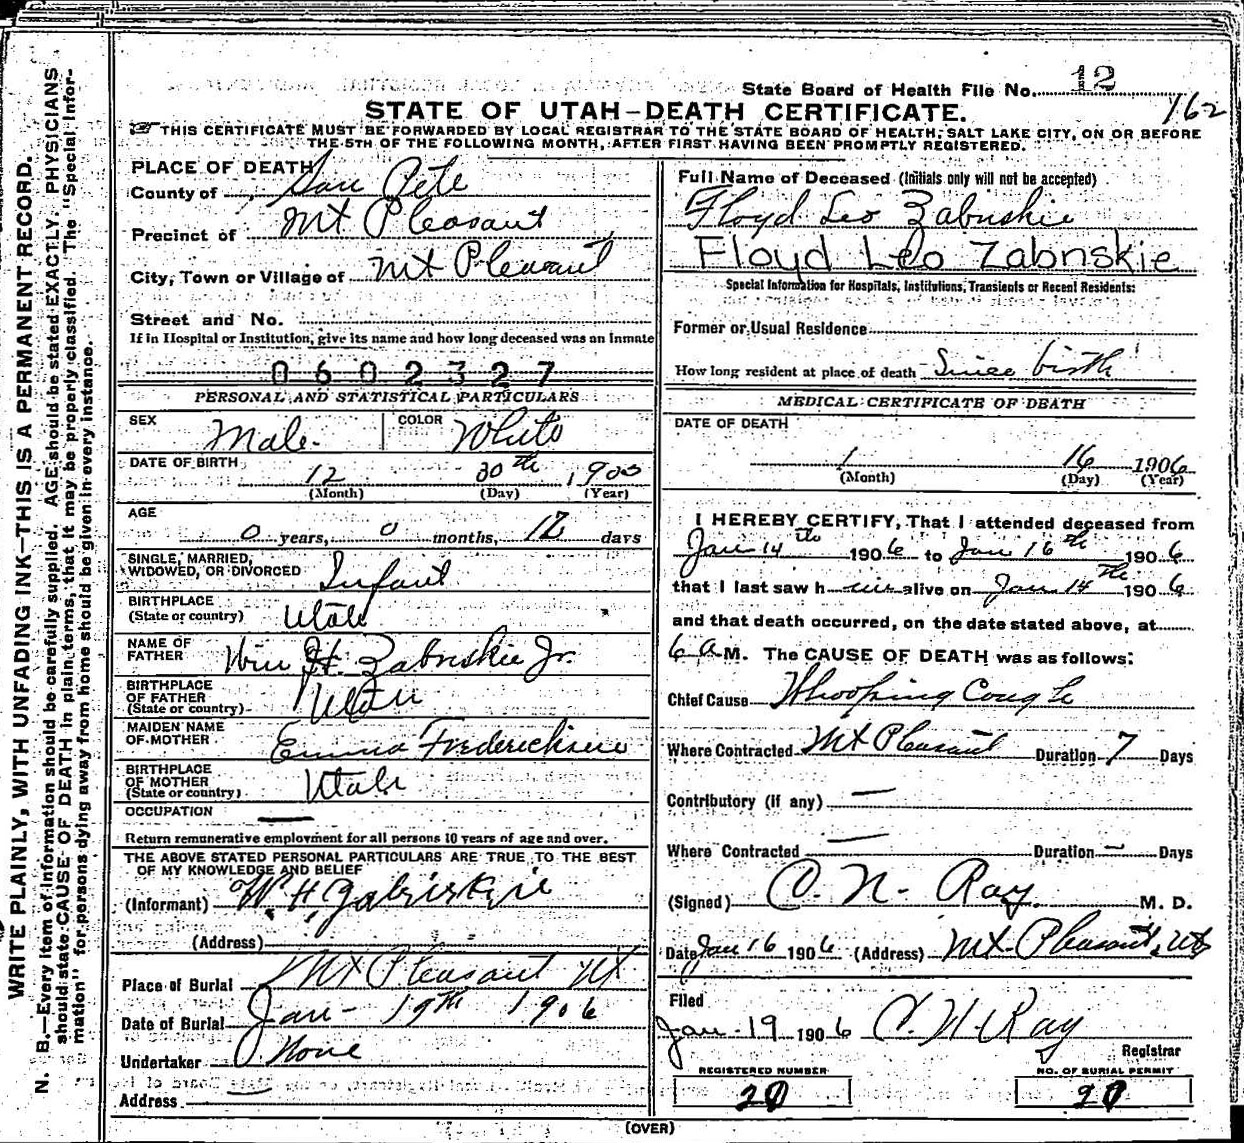 State Board of Health File No. 12
162
STATE OF UTAH—DEATH CERTIFICATE.
THIS CERTIFICATE MUST BE FORWARDED BY LOCAL REGISTRAR TO THE STATE BOARD OF HEALTH, SALT LAKE CITY, ON OR BEFORE
THE 5TH OF THE FOLLOWING MONTH, AFTER FIRST HAVING BEEN PROMPTLY REGISTERED.
PLACE OF DEATH
County of San Pete
Precinct of Mt Pleasant
City, Town or Village of Mt Pleasant
Street and No.
If in Hospital or Institution, give its name and how long deceased was an inmate
0602327
PERSONAL AND STATISTICAL PARTICULARS
SEX Male. COLOR White
DATE OF BIRTH 12 30th 1900
(Month) (Day) (Year)
AGE
0 years, 0 months, 12 days
SINGLE, MARRIED,
WIDOWED, OR DIVORCED Infant
BIRTHPLACE
(State or country) Utah
NAME OF
FATHER Wm H. Zabriskie Jr.
BIRTHPLACE
OF FATHER
(State or country) Utah
MAIDEN NAME
OF MOTHER Emma Frederichsen
BIRTHPLACE
OF MOTHER
(State or country) Utah
OCCUPATION —
Return remunerative employment for all persons 10 years of age and over.
THE ABOVE STATED PERSONAL PARTICULARS ARE TRUE TO THE BEST
OF MY KNOWLEDGE AND BELIEF
(Informant) W. H. Zabriskie
(Address)
Place of Burial Mt Pleasant Ut
Date of Burial Jan - 19th 1906
Undertaker None
Address —
Full Name of Deceased (Initials only will not be accepted)
Floyd Leo Zabriskie
Floyd Leo Zabnskie
Special Information for Hospitals, Institutions, Transients or Recent Residents:
Former or Usual Residence
How long resident at place of death Since birth
MEDICAL CERTIFICATE OF DEATH
DATE OF DEATH
1 16 1906
(Month) (Day) (Year)
I HEREBY CERTIFY, That I attended deceased from
Jan 14th 1906 to Jan 16th 1906
that I last saw h im alive on Jan 14th 1906
and that death occurred, on the date stated above, at
6 a M. The CAUSE OF DEATH was as follows:
Chief Cause Whooping Cough
Where Contracted Mt Pleasant Duration 7 Days
Contributory (if any) —
Where Contracted — Duration — Days
(Signed) C. N. Ray. M. D.
Date Jan 16 1906 (Address) Mt. Pleasant, Ut
Filed
Jan - 19 1906 C. N. Ray
Registrar
REGISTERED NUMBER
20
NO. OF BURIAL PERMIT
20
(OVER)
WRITE PLAINLY, WITH UNFADING INK—THIS IS A PERMANENT RECORD.
N. B.—Every item of information should be carefully supplied. AGE should be stated EXACTLY. PHYSICIANS
should state CAUSE OF DEATH in plain terms, that it may be properly classified. The "Special Infor-
mation" for persons dying away from home should be given in every instance.